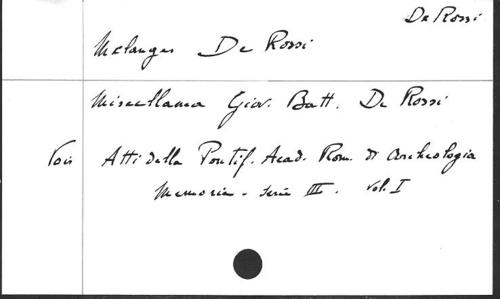 De Rossi
Mélanges De Rossi
Miscellanea Giov. Batt. De Rossi
Voir Atti della Pontif. Acad. Rom. di Archeologia
Memorie - serie III. Vol. I